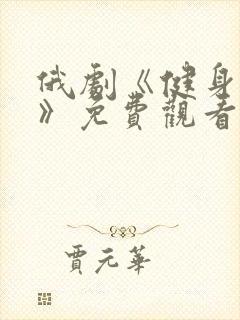 俄劇《健身
》免費觀看
賈元華